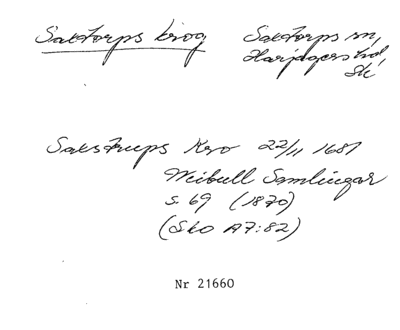 Saxtorps krog Saxtorps sn,
Harjagers hd,
Sk
Saxtrups Kro 22/11 1681
Weibull Samlingar
s. 69 (1870)
(Sko A7:82)
Nr 21660